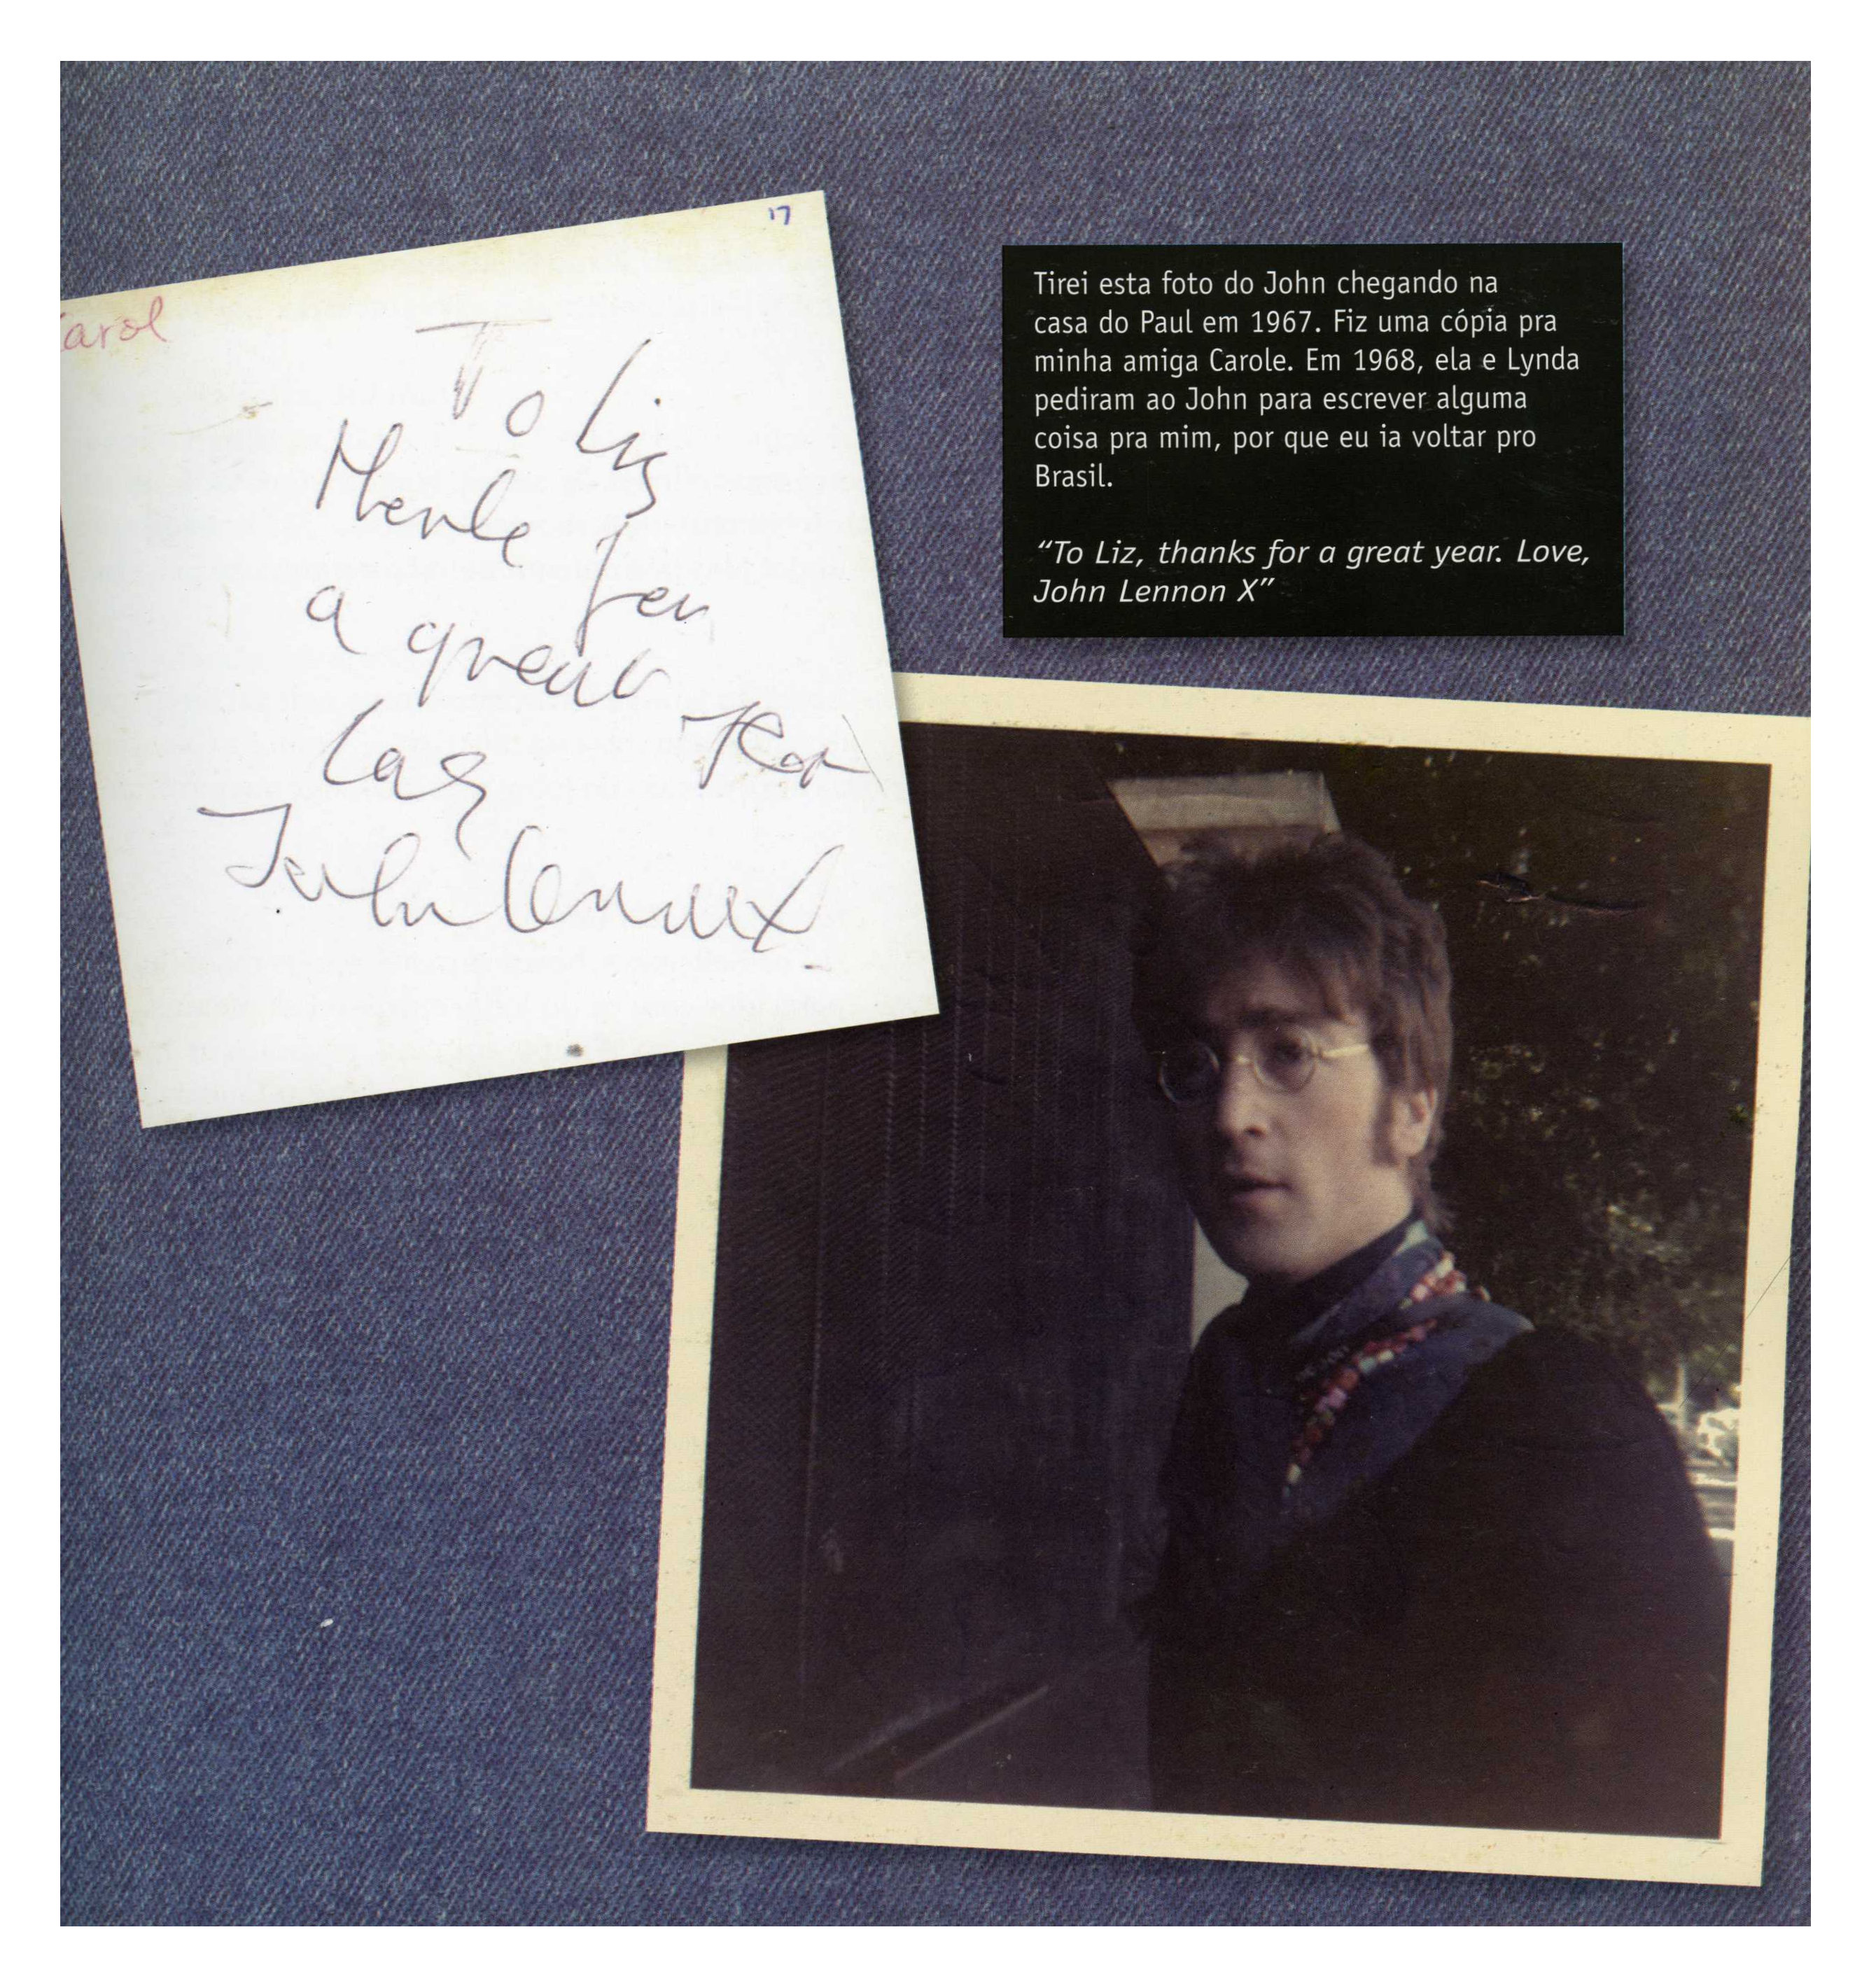 '17
Carol
To Liz
Thanks for
a great
year
Love
John Lennon X
Tirei esta foto do John chegando na
casa do Paul em 1967. Fiz uma cópia pra
minha amiga Carole. Em 1968, ela e Lynda
pediram ao John para escrever alguma
coisa pra mim, por que eu ia voltar pro
Brasil.
“To Liz, thanks for a great year. Love,
John Lennon X”